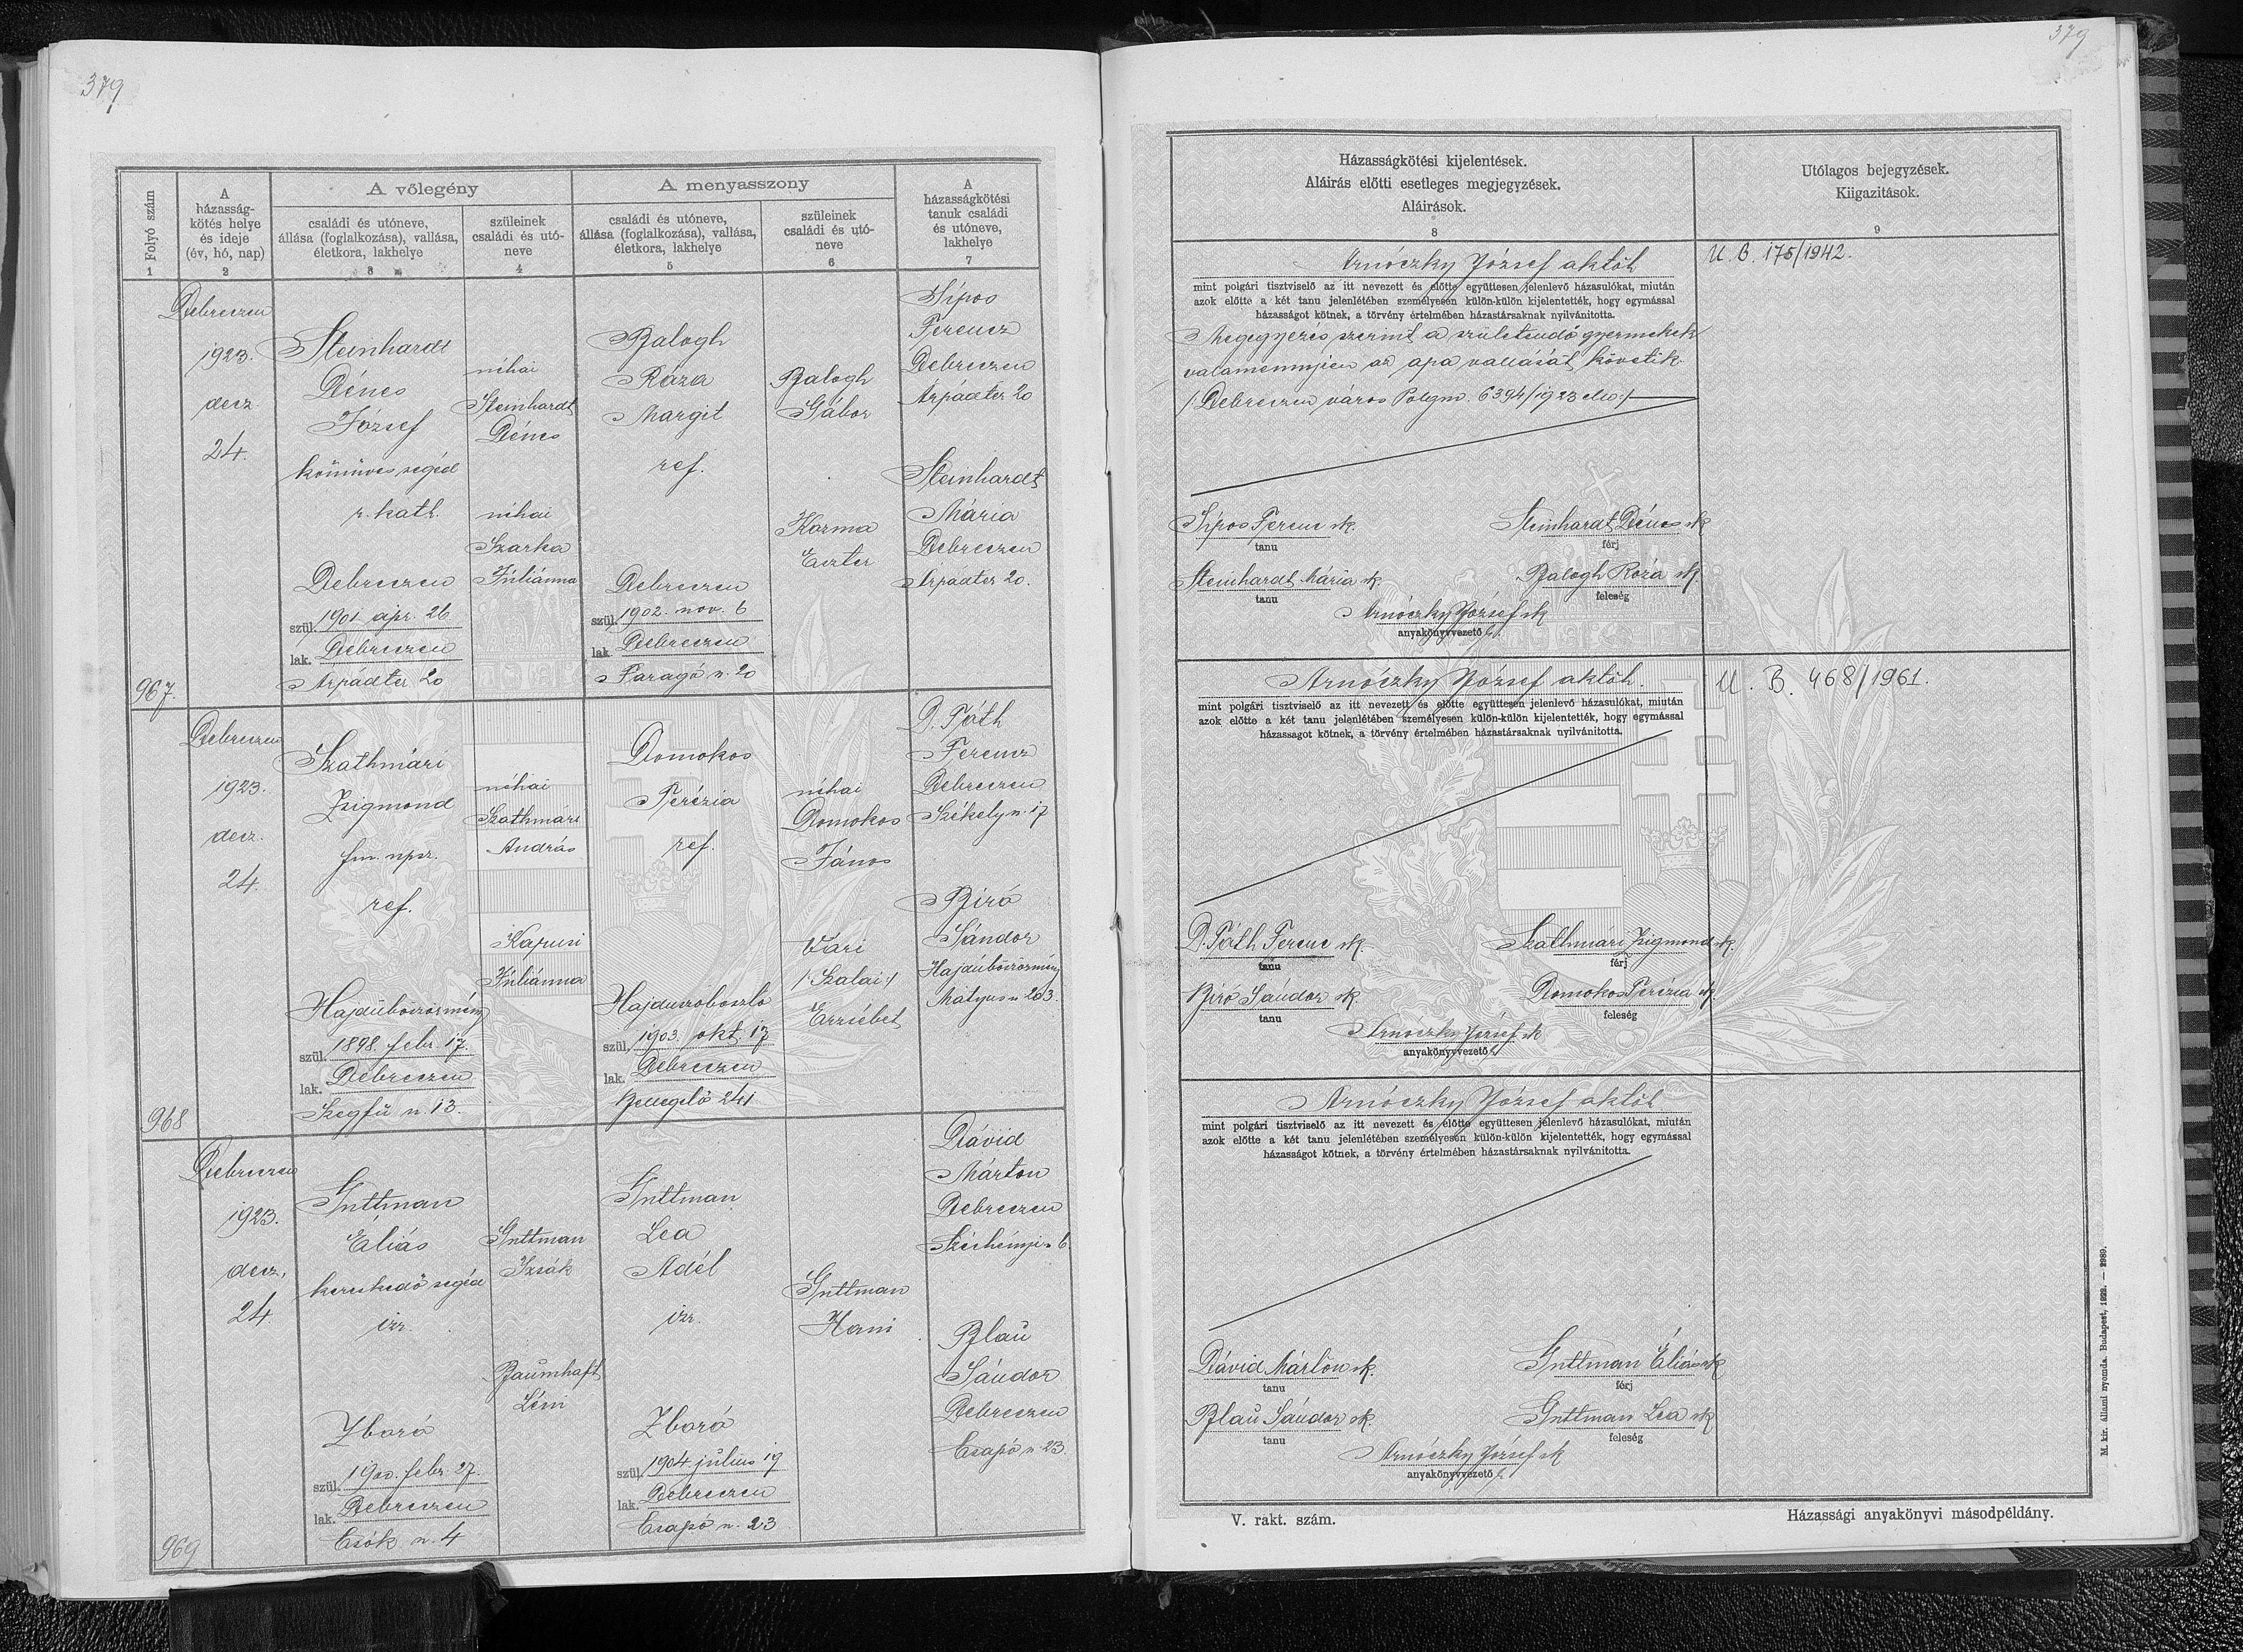 379
Folyó szám
1
A
házasság-
kötés helye
és ideje
(év, hó, nap)
2
A vőlegény
családi és utóneve,
állása (foglalkozása), vallása,
életkora, lakhelye
3
szüleinek
családi és utó-
neve
4
A menyasszony
családi és utóneve,
állása (foglalkozása), vallása,
életkora, lakhelye
5
szüleinek
családi és utó-
neve
6
A
házasságkötési
tanuk családi
és utóneve,
lakhelye
7
967.
Debreczen
1923.
decz
24.
Steinhardt
Dénes
József
kőmüves segéd
r. kath.
Debreczen
szül. 1901 ápr. 26
lak. Debreczen
Árpádtér 20
néhai
Steinhardt
Dénes
néhai
Szarka
Júliánna
Balogh
Róza
Margit
ref.
Debreczen
szül. 1902. nov. 6
lak. Debreczen
Faragó u. 20
Balogh
Gábor
Kozma
Eszter
Sípos
Ferencz
Debreczen
Árpádtér 20
Steinhardt
Mária
Debreczen
Árpádtér 20.
968
Debreczen
1923.
decz.
24.
Szathmári
Zsigmond
fm. npsz.
ref.
Hajdúböszörmény
szül. 1898. febr. 17.
lak. Debreczen
Szegfű u. 13.
néhai
Szathmári
András
Kapusi
Júliánna
Domokos
Terézia
ref.
Hajduszoboszló
szül. 1903. okt. 17
lak. Debreczen
241
néhai
Domokos
János
Vári
/:Szalai:/
Erzsébet
D. Tóth
Ferencz
Debreczen
Székely u. 17
Biró
Sándor
Hajdúböszörmény
Mátyás u 203.
969
Debreczen
1923.
decz,
24.
Guttman
Éliás
kereskedő segéd
izr.
Zboró
szül. 1900. febr. 27.
lak. Debreczen
Csók u. 4
Guttman
Izsák
Baumhaft
Léni
Guttman
Lea
Adél
izr.
Zboró
szül. 1904 július 19
lak. Debreczen
Csapó u. 23
Guttman
Hani
Dávid
Márton
Debreczen
Széchényi u 6.
Blau
Sándor
Debreczen
Csapó u 23.
379
Házasságkötési kijelentések.
Aláirás előtti esetleges megjegyzések.
Aláirások.
8
Utólagos bejegyzések.
Kiigazitások.
9
Arnóczky József aktöh
mint polgári tisztviselő az itt nevezett és előtte együttesen jelenlevő házasulókat, miután
azok előtte a két tanu jelenlétében személyesen külön-külön kijelentették, hogy egymással
házasságot kötnek, a törvény értelmében házastársaknak nyilvánitotta.
Megegyezés szerint a születendő gyermekek
valamennyien az apa vallását követik.
/:Debreczen város Polgm. 6394/1923 :/
U. B. 175/1942.
Sípos Ferenc sk.
tanu
Steinhardt Dénes sk
férj
Steinhardt Mária sk.
tanu
Balogh Róza sk.
feleség
Arnóczky József sk
anyakönyvvezető h.
Arnóczky József aktöh.
mint polgári tisztviselő az itt nevezett és előtte együttesen jelenlevő házasulókat, miután
azok előtte a két tanu jelenlétében személyesen külön-külön kijelentették, hogy egymással
házasságot kötnek, a törvény értelmében házastársaknak nyilvánitotta.
U. B. 468/1961.
D. Tóth Ferenc sk.
tanu
Szathmári Zsigmond sk.
férj
Biró Sándor sk.
tanu
Domokos Terézia sk.
feleség
Arnóczky József sk
anyakönyvvezető h.
Arnóczky József aktöh
mint polgári tisztviselő az itt nevezett és előtte együttesen jelenlevő házasulókat, miután
azok előtte a két tanu jelenlétében személyesen külön-külön kijelentették, hogy egymással
házasságot kötnek, a törvény értelmében házastársaknak nyilvánitotta.
Dávid Márton sk.
tanu
Guttman Éliás sk
férj
Blau Sándor sk.
tanu
Guttman Lea sk
feleség
Arnóczky József sk
anyakönyvvezető h.
V. rakt. szám.
Házassági anyakönyvi másodpéldány.
M. kir. állami nyomda. Budapest, 1922. — 2989.